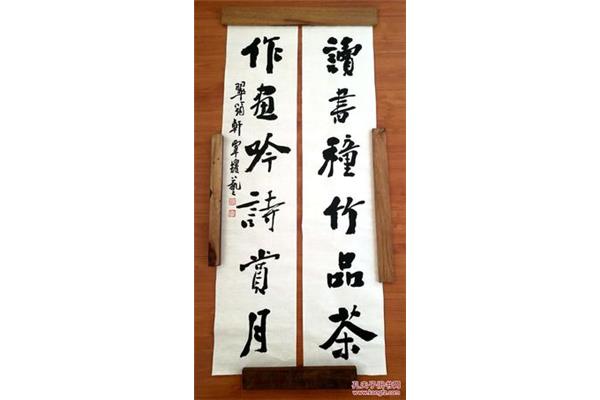 讀書種竹品茶
作画吟詩賞月
孔夫子旧书网
www.kongfz.com